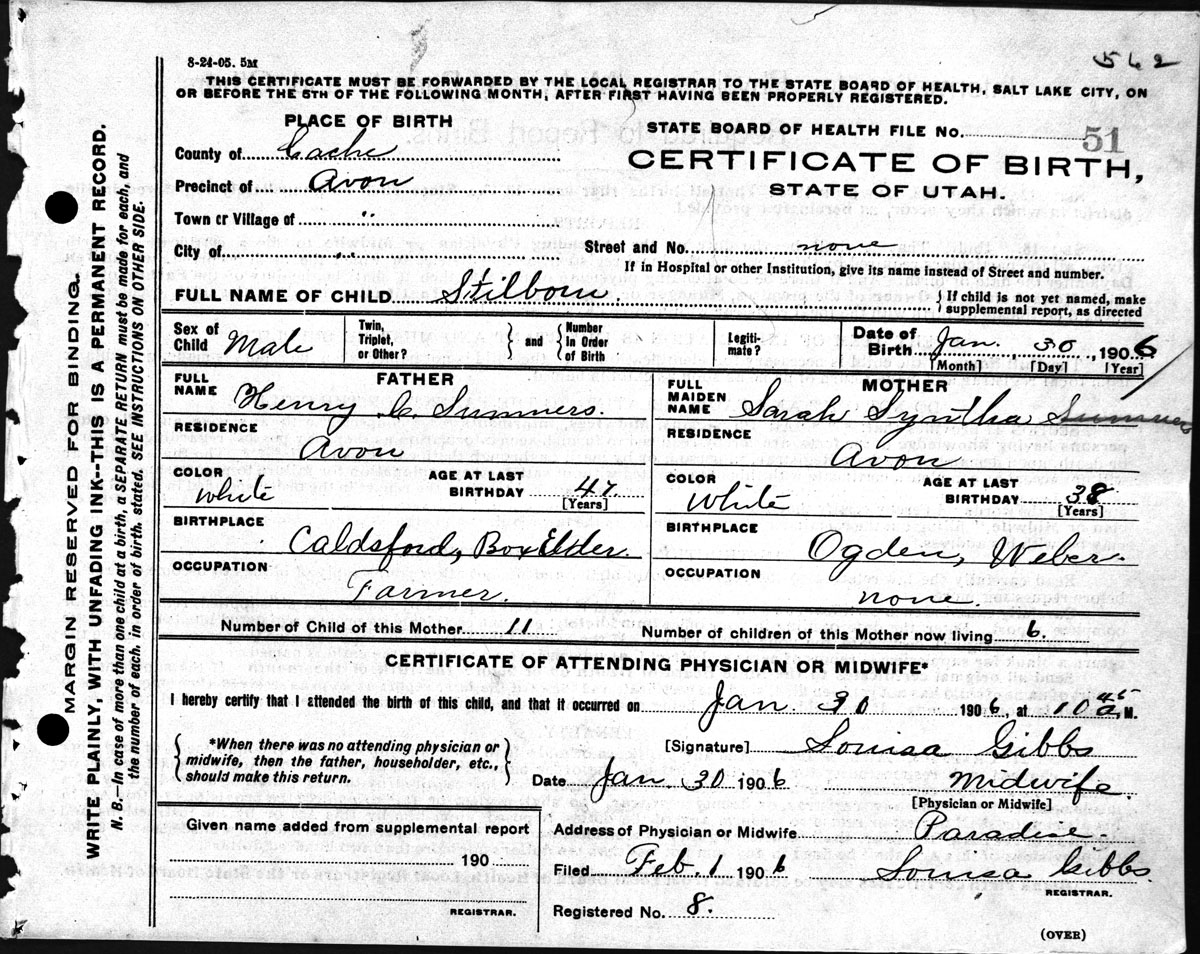 562
8-24-05. 5M
THIS CERTIFICATE MUST BE FORWARDED BY THE LOCAL REGISTRAR TO THE STATE BOARD OF HEALTH, SALT LAKE CITY, ON
OR BEFORE THE 5TH OF THE FOLLOWING MONTH, AFTER FIRST HAVING BEEN PROPERLY REGISTERED.
PLACE OF BIRTH
STATE BOARD OF HEALTH FILE No. 51
County of Cache
CERTIFICATE OF BIRTH,
Precinct of Avon
STATE OF UTAH.
Town or Village of "
City of "
Street and No. none
If in Hospital or other Institution, give its name instead of Street and number.
FULL NAME OF CHILD Stilborn
{ If child is not yet named, make
supplemental report, as directed
Sex of Child Male
Twin, Triplet, or Other? } and { Number In Order of Birth
Legitimate?
Date of Birth Jan. 30, 1906
[Month] [Day] [Year]
FATHER
FULL NAME Henry C Summers.
RESIDENCE
Avon
COLOR White
AGE AT LAST BIRTHDAY 47 [Years]
BIRTHPLACE
Caldsford, Box Elder.
OCCUPATION
Farmer.
MOTHER
FULL MAIDEN NAME Sarah Syntha Summers
RESIDENCE
Avon
COLOR White
AGE AT LAST BIRTHDAY 38 [Years]
BIRTHPLACE
Ogden, Weber.
OCCUPATION
none.
Number of Child of this Mother 11
Number of children of this Mother now living 6.
CERTIFICATE OF ATTENDING PHYSICIAN OR MIDWIFE*
I hereby certify that I attended the birth of this child, and that it occurred on Jan. 30 1906, at 10 45 a, M.
{ *When there was no attending physician or
midwife, then the father, householder, etc.,
should make this return. }
[Signature] Louisa Gibbs
Date Jan 30 1906 Midwife.
[Physician or Midwife]
Given name added from supplemental report
190
REGISTRAR.
Address of Physician or Midwife Paradise.
Filed Feb. 1 1906 Louisa Gibbs.
REGISTRAR.
Registered No. 8.
(OVER)
MARGIN RESERVED FOR BINDING.
WRITE PLAINLY, WITH UNFADING INK--THIS IS A PERMANENT RECORD.
N. B.--In case of more than one child at a birth, a SEPARATE RETURN must be made for each, and
the number of each, in order of birth, stated. SEE INSTRUCTIONS ON OTHER SIDE.